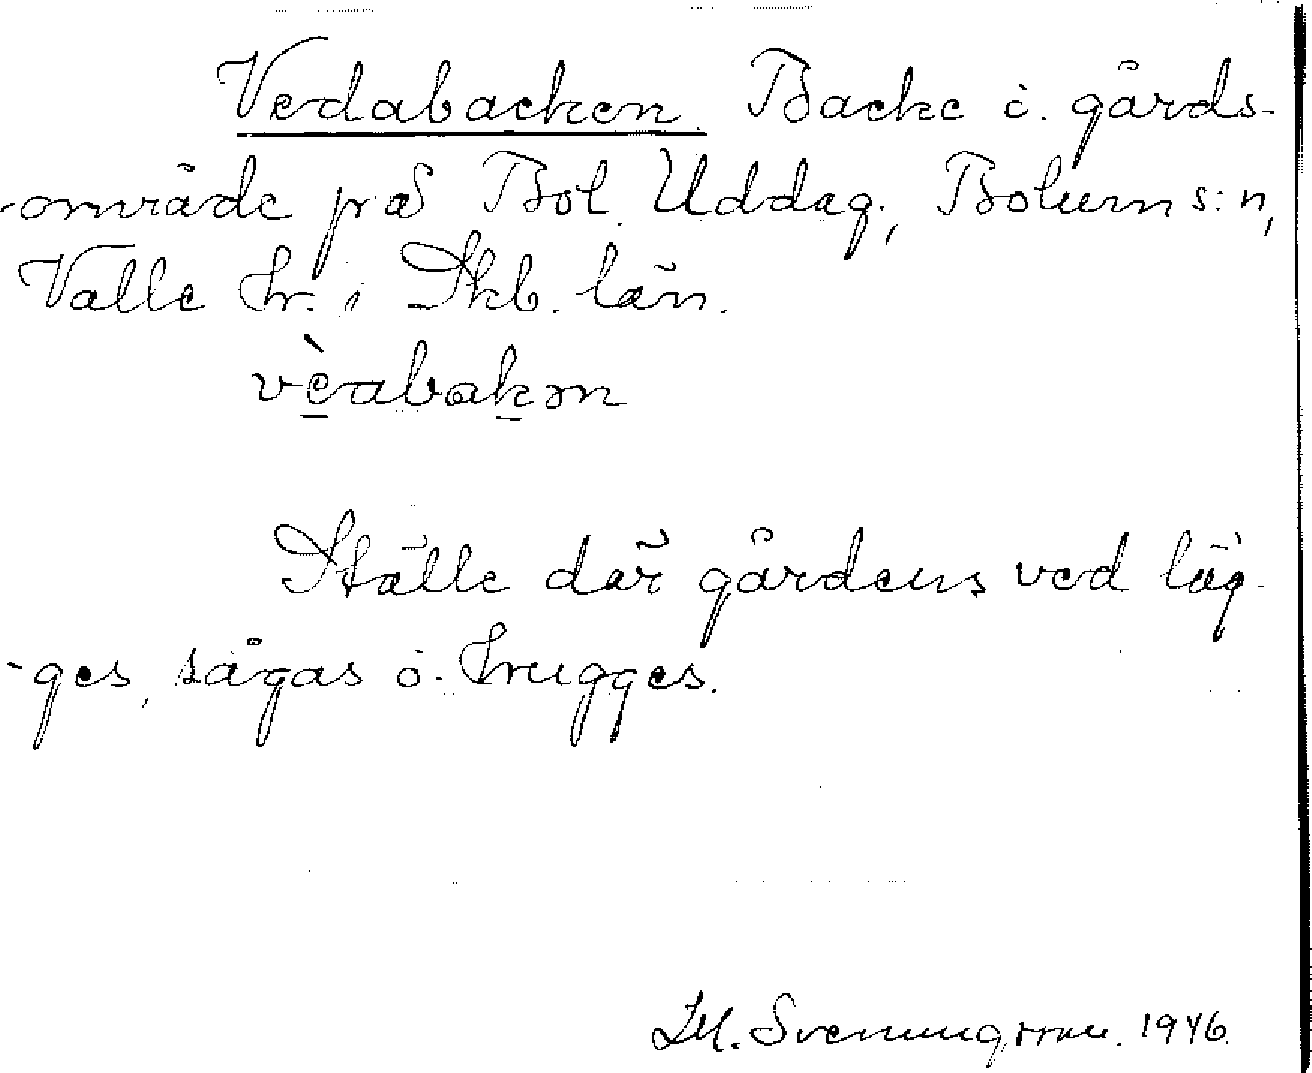 Vedabacken. Backe i gårds-
-område på Bol. Uddag., Bolum s:n,
Valle hr. i Skb. län.
vèabakən
Ställe där gårdens ved läg-
-ges, sågas o. huggges.
Svenungsson. 1946.